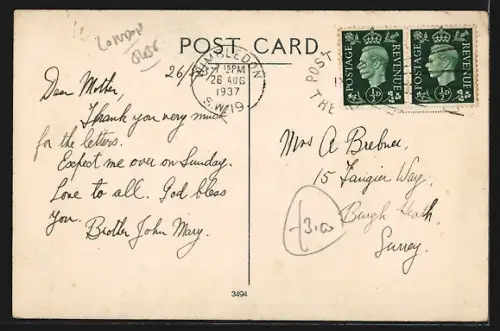 London
POST CARD.
WIMBLEDON
7 15PM
26 AUG
1937
S.W.19.
POST
THE
POSTAGE REVENUE
½D
POSTAGE REVENUE
½D
26/8/37
Dear Mother,
Thank you very much
for the letters.
Expect me over on Sunday.
Love to all. God bless
You.
Brother John Mary.
Mrs A Brebner
15 Tangier Way.
Burgh Heath.
Surrey.
£3.00
3494